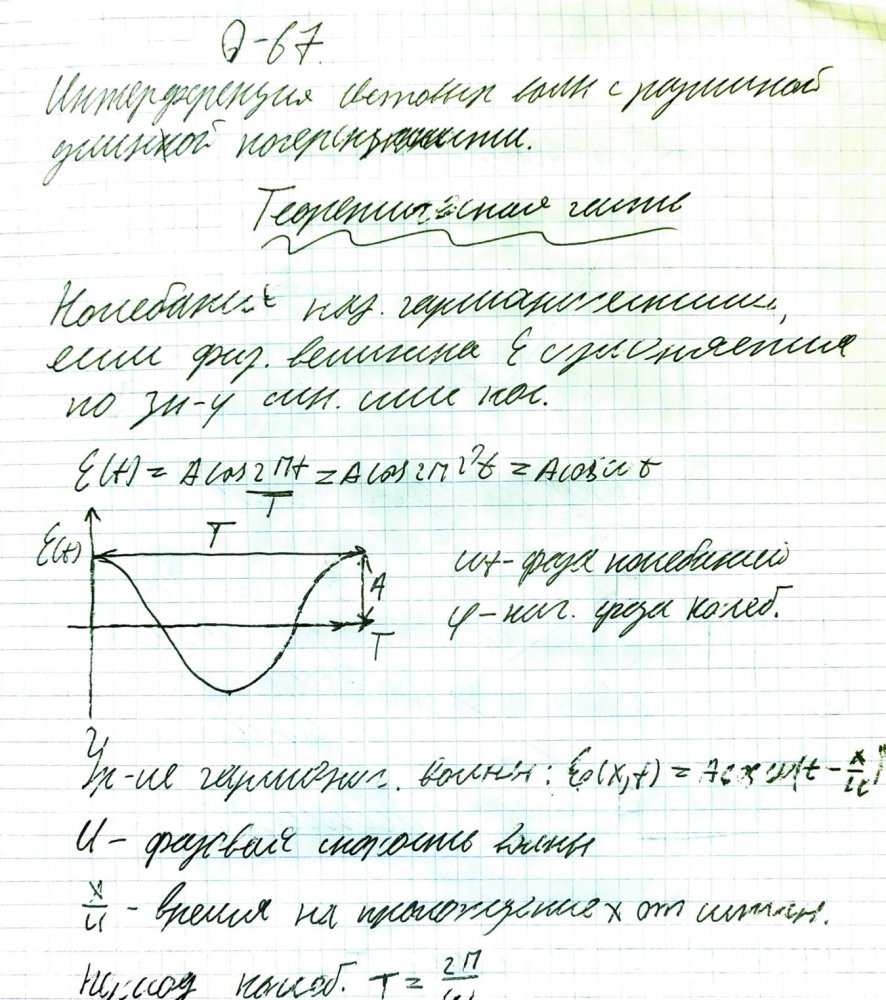 О-67.
Интерференция световых волн с различной
длинной когерентности.
Теоретическая часть
Колебания наз. гармоническими,
если физ. величина ξ изменяется
по зн-у син. или кос.
ξ(t) = A cos 2πt/T = A cos 2π νt = A cos ωt
ξ(t) T A T
ωt - фаза колебаний
φ - нач. фаза колеб.
Ур-ие гармонич. волны: ξ(x,t) = A cos ω(t - x/u)
u - фазовая скорость волны
x/u - время на прохождение x от источн.
Период колеб. T = 2π/ω